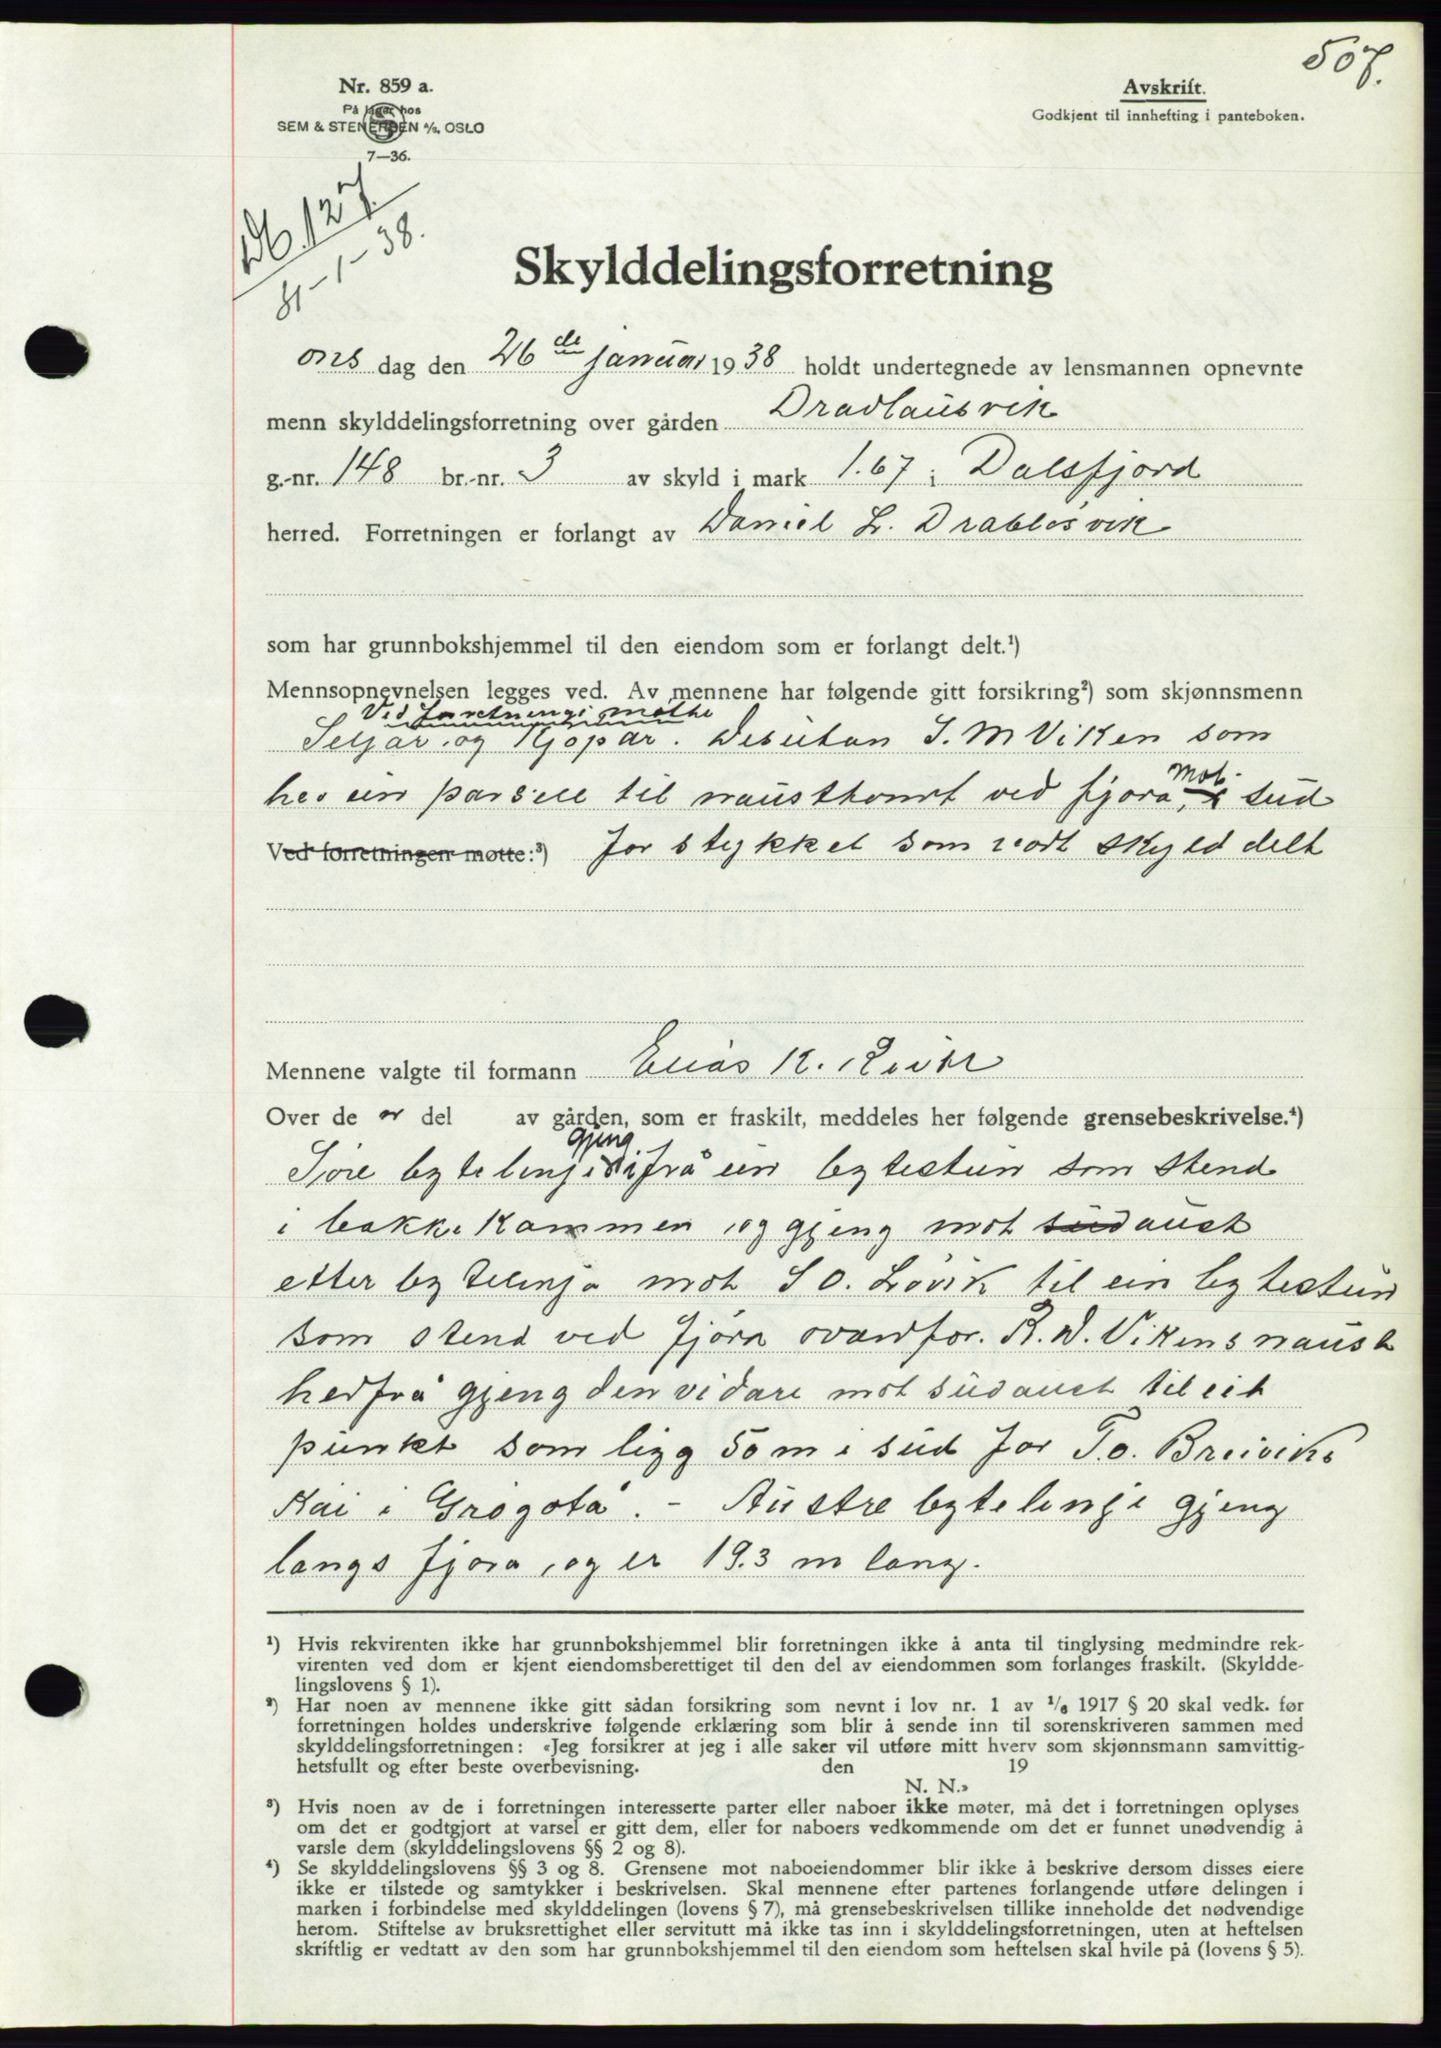 507.
Nr. 859 a.
På lager hos
SEM & STENERSEN A/S, OSLO
7—36.
Avskrift.
Godkjent til innhefting i panteboken.
Db. 127.
31-1-38.
Skylddelingsforretning
ons dag den 26de januar 1938 holdt undertegnede av lensmannen opnevnte
menn skylddelingsforretning over gården Dravlausvik
g.-nr. 148 br.-nr. 3 av skyld i mark 1.67 i Dalsfjord
herred. Forretningen er forlangt av Daniel L. Drabløsvik
som har grunnbokshjemmel til den eiendom som er forlangt delt.¹)
Mennsopnevnelsen legges ved. Av mennene har følgende gitt forsikring²) som skjønnsmenn
Ved forretningi møtte
Seljar og Kjøpar. Desutan S. M Viken som
hev ein parsell til nausttomt ved fjøra, mot sud
Ved forretningen møtte:³) for stykket som vart skyld delt
Mennene valgte til formann Elias K.
Over de er del av gården, som er fraskilt, meddeles her følgende grensebeskrivelse.⁴)
gjeng
Søre bytelinje ifrå ein bytestein som stend
i bakke kammen og gjeng mot sudaust
etter bytelinja mot S O. Løvik til ein bytestein
som stend ved fjøra ovanfor R. D. Vikens naust
herfrå gjeng den vidare mot sudaust til eit
punkt som ligg 50 m i sud for T. O. Breiviks
Kai i Grøgota. - Austre bytelinje gjeng
langs fjøra, og er 19.3 m lang.
¹) Hvis rekvirenten ikke har grunnbokshjemmel blir forretningen ikke å anta til tinglysing medmindre rek-
virenten ved dom er kjent eiendomsberettiget til den del av eiendommen som forlanges fraskilt. (Skyldde-
lingslovens § 1).
²) Har noen av mennene ikke gitt sådan forsikring som nevnt i lov nr. 1 av 1/6 1917 § 20 skal vedk. før
forretningen holdes underskrive følgende erklæring som blir å sende inn til sorenskriveren sammen med
skylddelingsforretningen: «Jeg forsikrer at jeg i alle saker vil utføre mitt hverv som skjønnsmann samvittig-
hetsfullt og efter beste overbevisning. den 19
N. N.»
³) Hvis noen av de i forretningen interesserte parter eller naboer ikke møter, må det i forretningen oplyses
om det er godtgjort at varsel er gitt dem, eller for naboers vedkommende om det er funnet unødvendig å
varsle dem (skylddelingslovens §§ 2 og 8).
⁴) Se skylddelingslovens §§ 3 og 8. Grensene mot naboeiendommer blir ikke å beskrive dersom disses eiere
ikke er tilstede og samtykker i beskrivelsen. Skal mennene efter partenes forlangende utføre delingen i
marken i forbindelse med skylddelingen (lovens § 7), må grensebeskrivelsen tillike inneholde det nødvendige
herom. Stiftelse av bruksrettighet eller servitutt må ikke tas inn i skylddelingsforretningen, uten at heftelsen
skriftlig er vedtatt av den som har grunnbokshjemmel til den eiendom som heftelsen skal hvile på (lovens § 5).